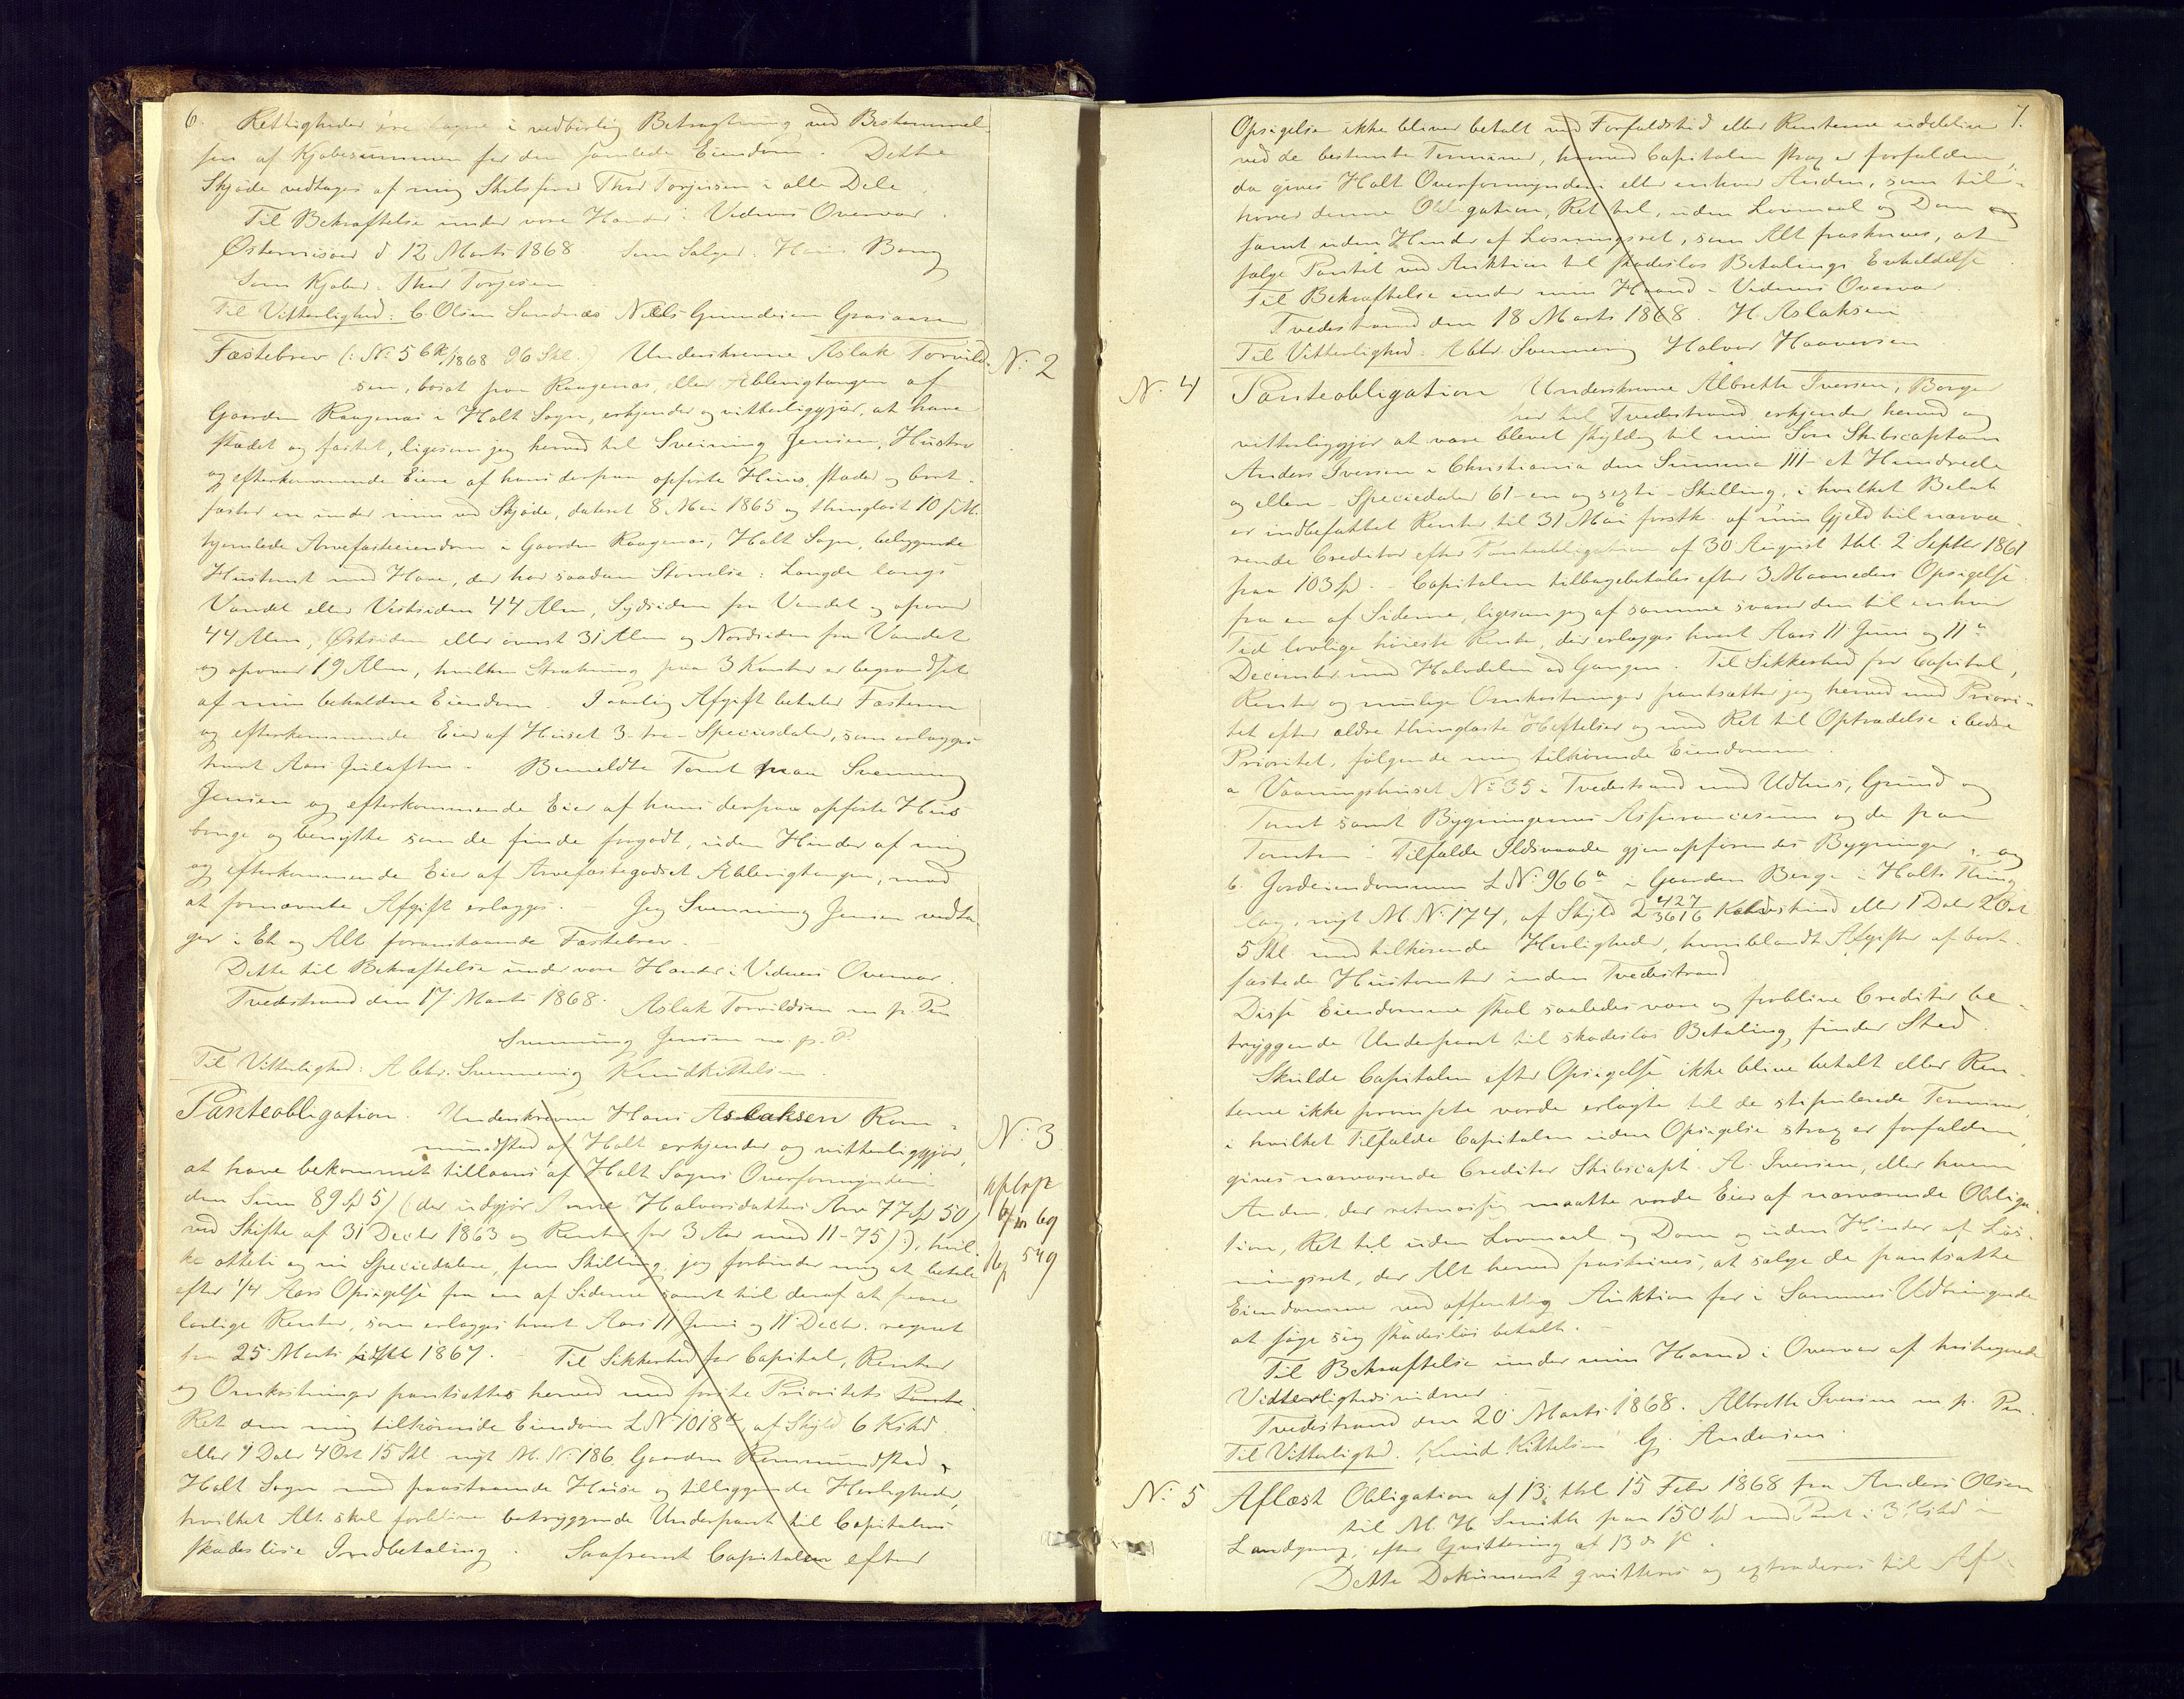 6.
Rettigheder ere tagne i vedbørlig Betragtning ved Bestemmel-
sen af Kjøbesummen for den samlede Eiendom. Dette
Skjøde vedtages af mig Skibsfører Thor Torjesen i alle Dele.
Til Bekræftelse under vore Hænder i Vidners Overvær.
Østerrisøer d 12 Marts 1868 Som Sælger. Hans Bang
Som Kjøber. Thor Torjesen
Til Vitterlighed: C. Olsen Sandnæs Niels Gundersen
N: 2
Fæstebrev (: No: 5 6 Kl/1868 96 Skl.) Underskrevne Aslak Torvild-
sen, bosat paa Raagenæs, eller Ablevigtangen af
Gaarden Raagenæs i Holt Sogn, erkjender og vitterliggjør, at have
stædet og fæstet, ligesom jeg herved til Svenning Jensen, Hustru
og efterkommende Eiere af hans derpaa opførte Huus, stæder og bort-
fæster en under min ved Skjøde, dateret 8 Mai 1865 og thinglæst 10 s. M.
hjemlede Arvefæsteeiendom i Gaarden Raagenæs, Holt Sogn, beliggende
Huustomt med Have, der har saadan Størrelse: Længde langs
Vandet eller Vestsiden 44 Alen, Sydsiden fra Vandet og opover
44 Alen, Østsiden eller øverst 31 Alen og Nordsiden fra Vandet
og opover 19 Alen, hvilken Strækning paa 3 Kanter er begrændset
af min beholdne Eiendom. I aarlig Afgift betaler Fæsteren
og efterkommende Eier af Huset 3- tre- Speciesdaler, som erlægges
hvert Aars Juleaften. Bemeldte Tomt maa Svenning
Jensen og efterkommende Eier af hans derpaa opførte Huus
bruge og benytte som de finde forgodt, uden Hinder af mig
og efterkommende Eier af Arvefæstegodset Ablevigtangen, mod
at fornævnte Afgift erlægges. - Jeg Svenning Jensen vedta-
ger i Et og Alt foranstaaende Fæstebrev. -
Dette til Bekræftelse under vore Hænder i Vidners Overvær.
Tvedestrand den 17 Marts 1868. Aslak Torvildsen m. p. Pen
Svenning Jensen m. p. P.
Til Vitterlighed: A. Chr. Svennevig Knud Kittelsen.
N: 3
Panteobligation. Underskrevne Hans Aslaksen Rom-
mundstad af Holt erkjender og vitterliggjør,
at have bekommet tillaans af Holt Sogns Overformynderi
den Sum 89 Spd 5 ß (der udgjør Anne Halvorsdatters Arv 77 Spd 50 ß
ved Skifte af 31 Decbr 1863 og Renter for 3 Aar med 11-75 ß), hvil-
ke otteti og ni Speciedaler, fem Skilling, jeg forbinder mig at betale
efter 1/4 Aars Opsigelse fra en af Siderne samt til deraf at svare
lovlige Renter, som erlægges hvert Aars 11 Juni og 11 Decbr. regnet
fra 25 Marts 1867. - Til Sikkerhed for Capital, Renter
og Omkostninger pantsættes herved med første Prioritets Pante-
Ret den mig tilhørende Eiendom L No 1018a, af Skyld 6 Kshd
eller 4 Daler 4 Ort 15 Skl. nyt M. No: 186 Gaarden Rommundstad,
Holt Sogn med paastaaende Huse og tilliggende Herligheder,
hvilket Alt skal forblive betryggende Underpant til Capitalens
skadesløse Indbetaling. Saafremt Capitalen efter
7.
Opsigelse ikke bliver betalt ved Forfaldstid eller Renterne uddeblive
ved de bestemte Terminer, hvorved Capitalen strax er forfalden,
da gives Holt Overformynderi eller enhver Anden, som til-
hører denne Obligation, Ret til, uden Lovmaal og Dom og
samt uden Hinder af Løsningsret, som Alt fraskrives, at
sælge Pantet ved Auktion til skadesløs Betalings Erholdelse
Til Bekræftelse under min Haand i Vidners Overvær
Tvedestrand den 18 Marts 1868. H. Aslaksen
Til Vitterlighed. A Chr. Svennevig Halvor Haavorsen
N: 4
Panteobligation Underskrevne Albrette Iversen, Borger
her til Tvedestrand, erkjender herved og
vitterliggjør at være blevet skyldig til min Søn Skibscaptain
Anders Iversen i Christiania den Summa 111- et Hundrede
og elleve- Speciedaler 61- en og sexti- Skilling, i hvilket Beløb
er indbefattet Renter til 31 Mai førstk. af min Gjeld til nærvæ-
rende Creditor efter Panteobligation af 30 August thl. 2 Septbr 1861
paa 103 Spd. - Capitalen tilbagebetales efter 3 Maaneders Opsigelse
fra en af Siderne, ligesom jeg af samme svarer den til enhver
Tid lovlige høieste Rente, der erlægges hvert Aars 11 Juni og 11te
December med Halvdelen ad Gangen. Til Sikkerhed for Capital,
Renter og mulige Omkostninger pantsætter jeg herved med Priori-
tet efter ældre thinglæste Heftelser og med Ret til Optrædelse i bedre
Prioritet, følgende mig tilhørende Eiendomme.
a Vaaningshuset No 35 i Tvedestrand med Udhus, Grund og
Tomt samt Bygningernes Assurancesum og de paa
Tomten i Tilfælde Ildsvaade gjenopførendes Bygninger, og
b. Jordeiendommen L No: 966a i Gaarden Berge i Holts Thing-
lag, nyt M. No: 174, af Skyld 2 427/3616 Kalvskind eller 1 Daler 2 Ort
5 Skl. med tilhørende Herligheder, hvoriblandt Afgifter af bort-
fæstede Hustomter inden Tvedestrand.
Disse Eiendomme skal saaledes være og forblive Creditor be-
tryggende Underpant til skadesløs Betaling finder Sted.
Skulde Capitalen efter Opsigelse ikke blive betalt eller Ren-
terne ikke prompte vorde erlagte til de stipulerede Terminer,
i hvilket Tilfælde Capitalen uden Opsigelse strax er forfalden,
gives nærværende Creditor Skibscapt. A. Iversen, eller hvem
Anden, der retmæssig maatte vorde Eier af nærværende Obliga-
tion, Ret til uden Lovmaal og Dom og uden Hinder af Løs-
ningsret, der Alt herved fraskrives, at sælge de pantsatte
Eiendomme ved offentlig Auktion for i Sammes Udbringende
at søge sig skadesløs betalt. -
Til Bekræftelse under min Haand i Overvær af hostegnede
Vitterlighedsvidner.
Tvedestrand den 20 Marts 1868. Albrette Iversen m. p. Pen.
Til Vitterlighed. Knud Kittelsen G. Andersen.
N: 5
Aflæst Obligation af 13, thl 15 Febr 1868 fra Anders Olsen
til M. H. Smith paa 150 Spd med Pant i 3 Kshd i
Landgang, efter Qvittering af 13 ds
Dette Dokument qvitteres og extraderes til Af-